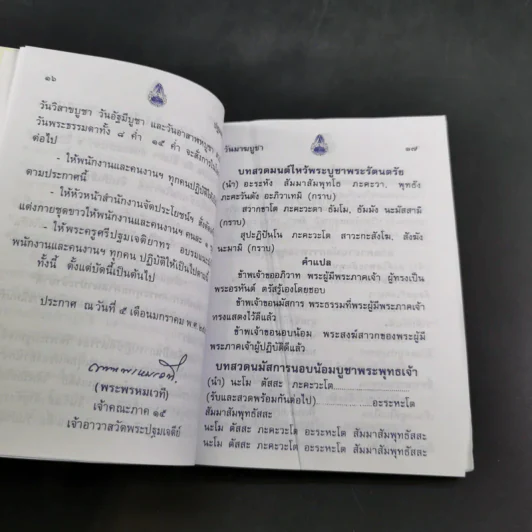 ๑๖
วันวิสาขบูชา วันอัฐมีบูชา และวันอาสาฬหบูชา
วันพระธรรมดาทั้ง ๘ ค่ำ ๑๕ ค่ำ
ต่อไป
- ให้พนักงานและคนงานฯ ทุกคนปฏิบัติ
ตามประกาศนี้
- ให้หัวหน้าสำนักงานจัดประโยชน์ฯ
แต่งกายชุดขาวให้พนักงานและคนงานฯ คนละ ๑
- ให้พระครูศรีปฐมเจติยาทร
พนักงานและคนงานฯ ทุกคน ปฏิบัติให้เป็นไปตามนี้
ทั้งนี้ ตั้งแต่บัดนี้เป็นต้นไป
ประกาศ ณ วันที่ ๕ เดือนมกราคม พ.ศ.
(พระพรหมเวที)
เจ้าคณะภาค ๑๕
เจ้าอาวาสวัดพระปฐมเจดีย์
วันมาฆบูชา ๑๗
บทสวดมนต์ไหว้พระบูชาพระรัตนตรัย
(นำ) อะระหัง สัมมาสัมพุทโธ ภะคะวา, พุทธัง
ภะคะวันตัง อะภิวาเทมิ (กราบ)
สวากขาโต ภะคะวะตา ธัมโม, ธัมมัง นะมัสสามิ
(กราบ)
สุปะฏิปันโน ภะคะวะโต สาวะกะสังโฆ, สังฆัง
นะมามิ (กราบ)
คำแปล
ข้าพเจ้าขออภิวาท พระผู้มีพระภาคเจ้า ผู้ทรงเป็น
พระอรหันต์ ตรัสรู้เองโดยชอบ
ข้าพเจ้าขอนมัสการ พระธรรมที่พระผู้มีพระภาคเจ้า
ทรงแสดงไว้ดีแล้ว
ข้าพเจ้าขอนอบน้อม พระสงฆ์สาวกของพระผู้มี
พระภาคเจ้าผู้ปฏิบัติดีแล้ว
บทสวดนมัสการนอบน้อมบูชาพระพุทธเจ้า
(นำ) นะโม ตัสสะ ภะคะวะโต..............................
(รับและสวดพร้อมกันต่อไป)......................อะระหะโต
สัมมาสัมพุทธัสสะ
นะโม ตัสสะ ภะคะวะโต อะระหะโต สัมมาสัมพุทธัสสะ
นะโม ตัสสะ ภะคะวะโต อะระหะโต สัมมาสัมพุทธัสสะ